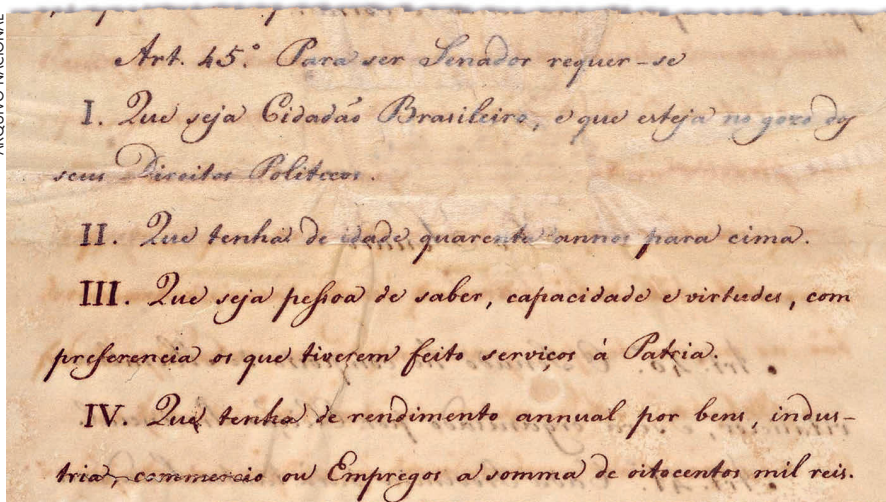 ARQUIVO NACIONAL
Art. 45.º Para ser Senador requer-se
I. Que seja Cidadão Brasileiro, e que esteja no gozo dos
seus Direitos Politicos.
II. Que tenha de idade quarenta annos para cima.
III. Que seja pessoa de saber, capacidade e virtudes, com
preferencia os que tiverem feito serviços à Patria.
IV. Que tenha de rendimento annual por bens, indus-
tria, commercio ou Empregos a somma de oitocentos mil reis.